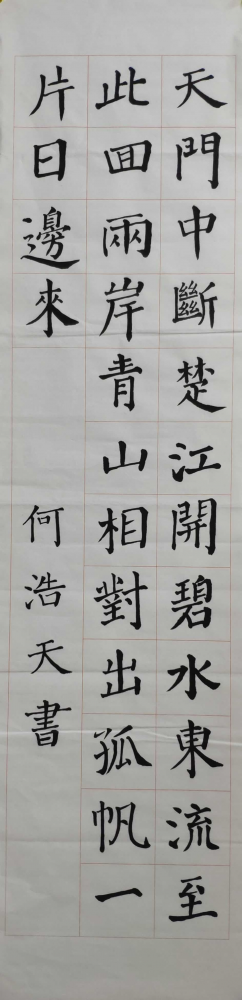 天門中斷楚江開碧水東流至
此回兩岸青山相對出孤帆一
片日邊來
何浩天書